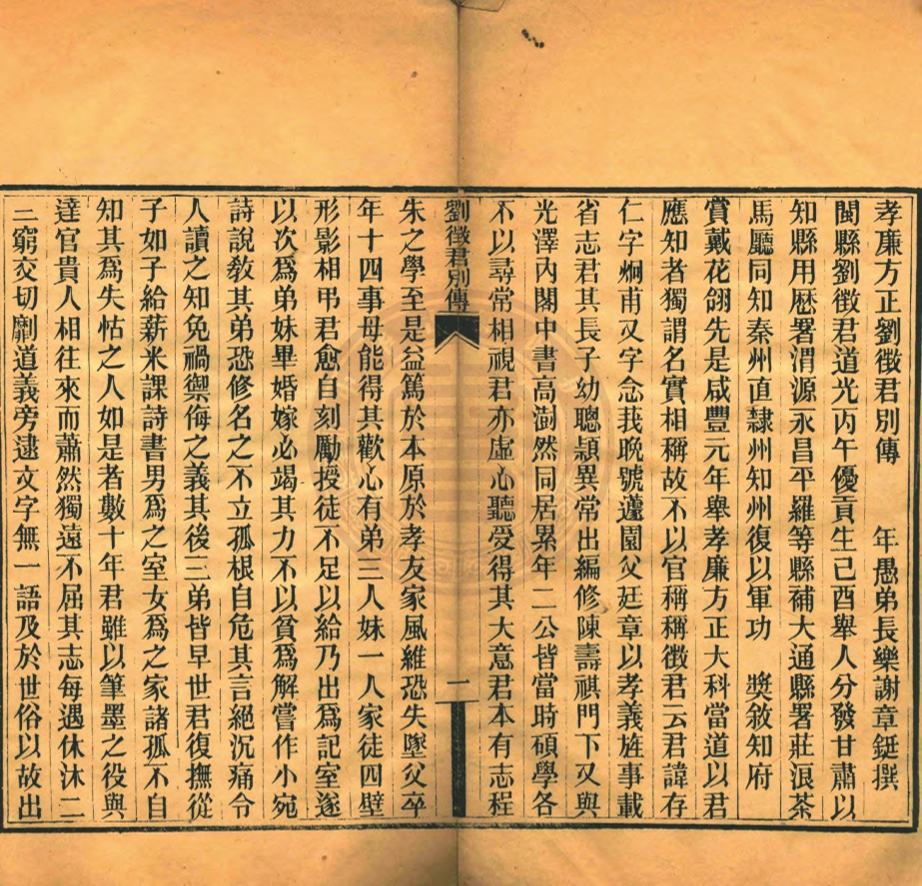 孝廉方正劉徵君別傳　年愚弟長樂謝章鋌撰
閩縣劉徵君道光丙午優貢生己酉舉人分發甘肅以
知縣用歷署渭源永昌平羅等縣補大通縣署莊浪茶
馬廳同知秦州直隸州知州復以軍功　獎敘知府
賞戴花翎先是咸豐元年舉孝廉方正大科當道以君
應知者獨謂名實相稱故不以官稱稱徵君云君諱存
仁字炯甫又字念莪晚號蘧園父廷章以孝義旌事載
省志君其長子幼聰頴異常出編修陳壽祺門下又與
光澤內閣中書高澍然同居累年二公皆當時碩學各
不以尋常相視君亦虛心聽受得其大意君本有志程
劉徵君別傳　一
朱之學至是益篤於本原於孝友家風維恐失墜父卒
年十四事母能得其歡心有弟三人妹一人家徒四壁
形影相弔君愈自刻勵授徒不足以給乃出爲記室遂
以次爲弟妹畢婚嫁必竭其力不以貧爲解嘗作小宛
詩說教其弟恐修名之不立孤根自危其言絕沉痛令
人讀之知免禍禦侮之義其後三弟皆早世君復撫從
子如子給薪米課詩書男爲之室女爲之家諸孤不自
知其爲失怙之人如是者數十年君雖以筆墨之役與
達官貴人相往來而蕭然獨遠不屈其志每遇休沐二
三窮交切劘道義旁逮文字無一語及於世俗以故出